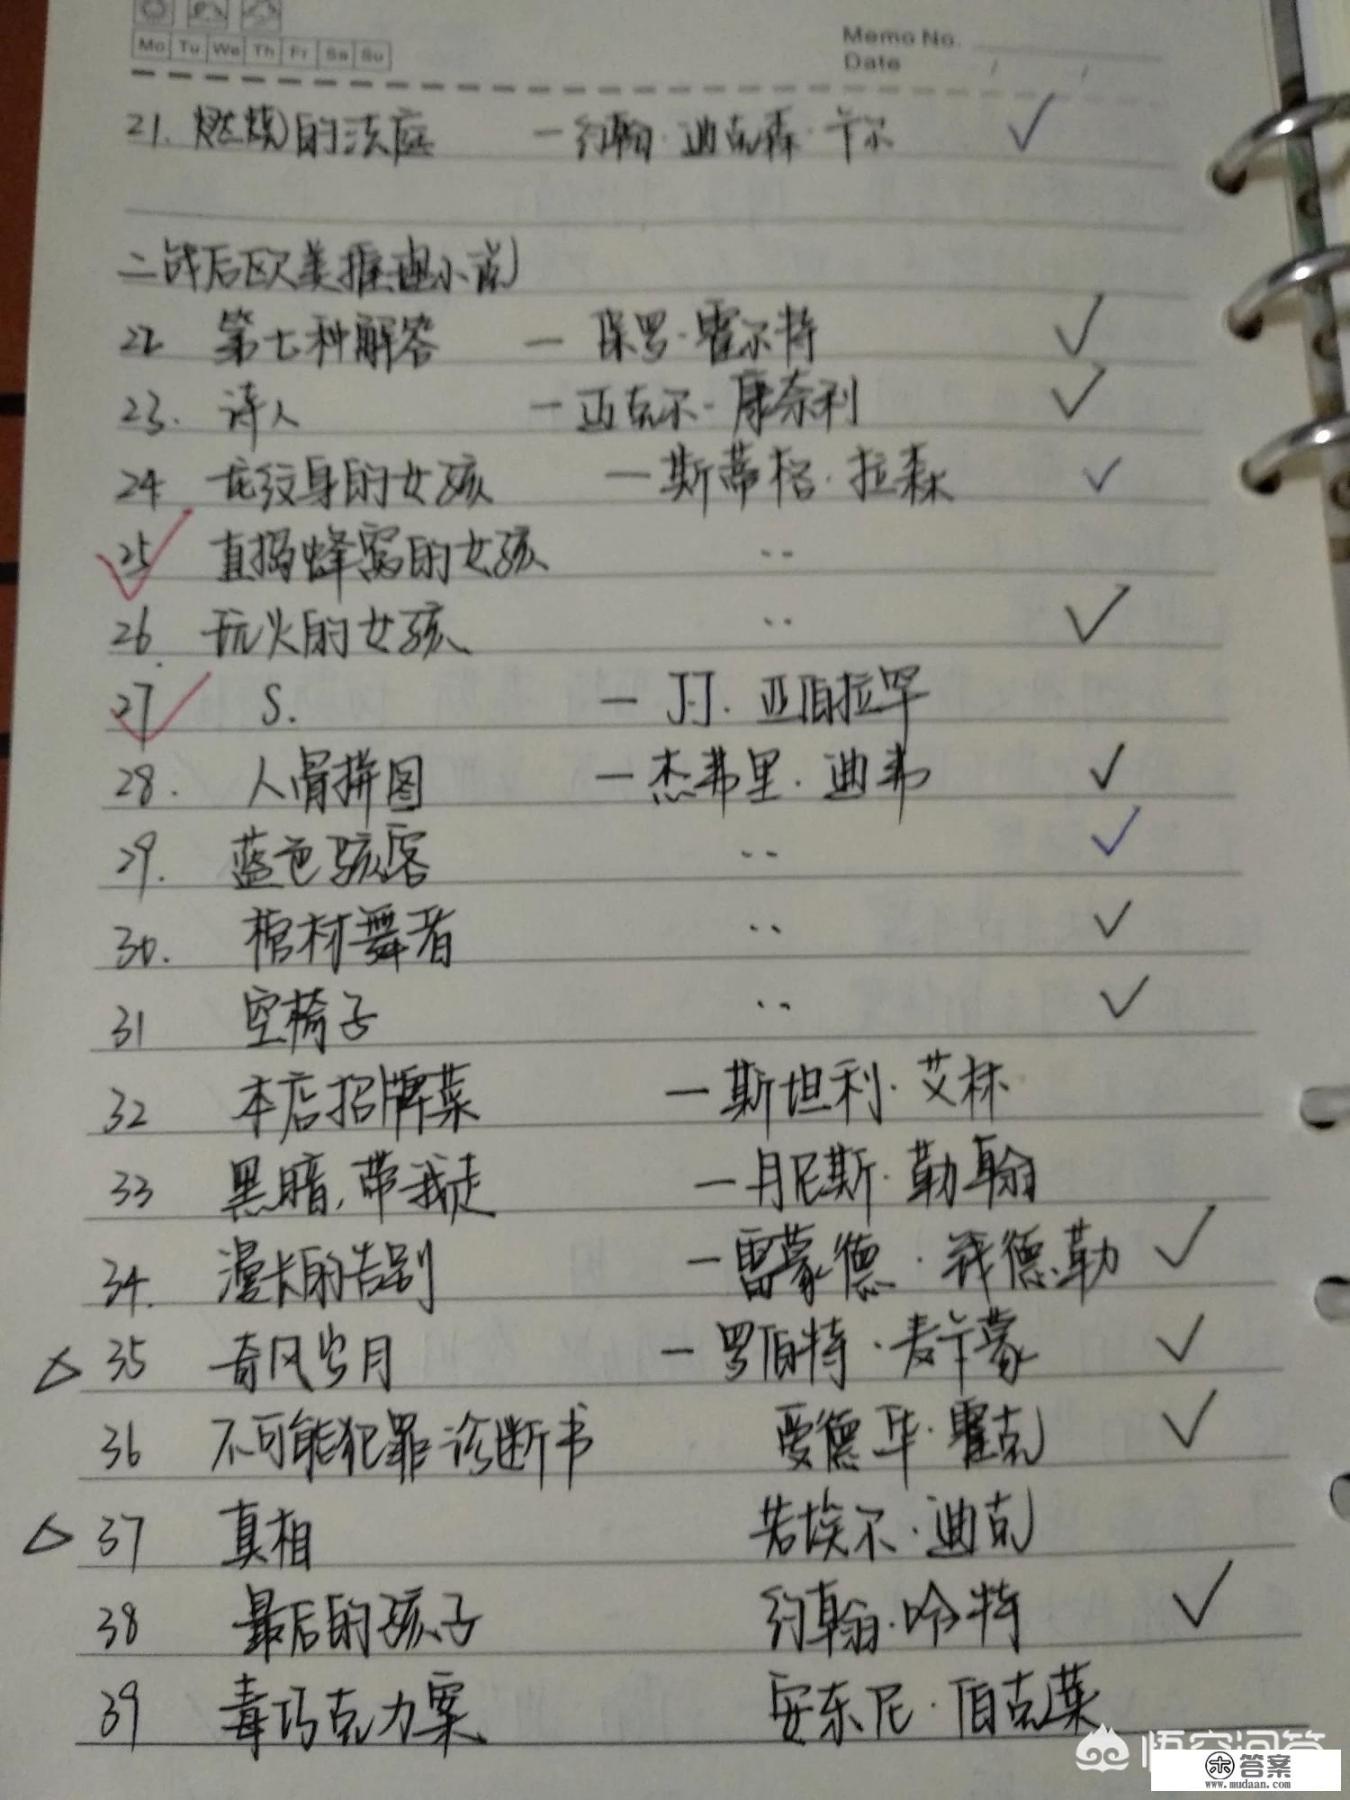 Mo Tu We Th Fr Sa Su
Memo No.
Date / /
21. 燃烧的法庭 — 约翰·迪克森·卡尔
二战后欧美推理小说
22 第七种解答 — 保罗·霍尔特
23. 诗人 — 迈克尔·康奈利
24 龙纹身的女孩 — 斯蒂格·拉森
25 直捣蜂窝的女孩 ..
26 玩火的女孩 ..
27 S. — J·J·亚伯拉罕
28. 人骨拼图 — 杰弗里·迪弗
29. 蓝色骇客 ..
30. 棺材舞者 ..
31 空椅子 ..
32 本店招牌菜 — 斯坦利·艾林
33 黑暗,带我走 — 丹尼斯·勒翰
34. 漫长的告别 — 雷蒙德·钱德勒
35 奇风岁月 — 罗伯特·麦卡蒙
36 不可能犯罪诊断书 爱德华·霍克
37 真相 若埃尔·迪克
38 最后的孩子 约翰·哈特
39 毒巧克力案 安东尼·伯克莱
悟空问答
答案
www.mudaan.com